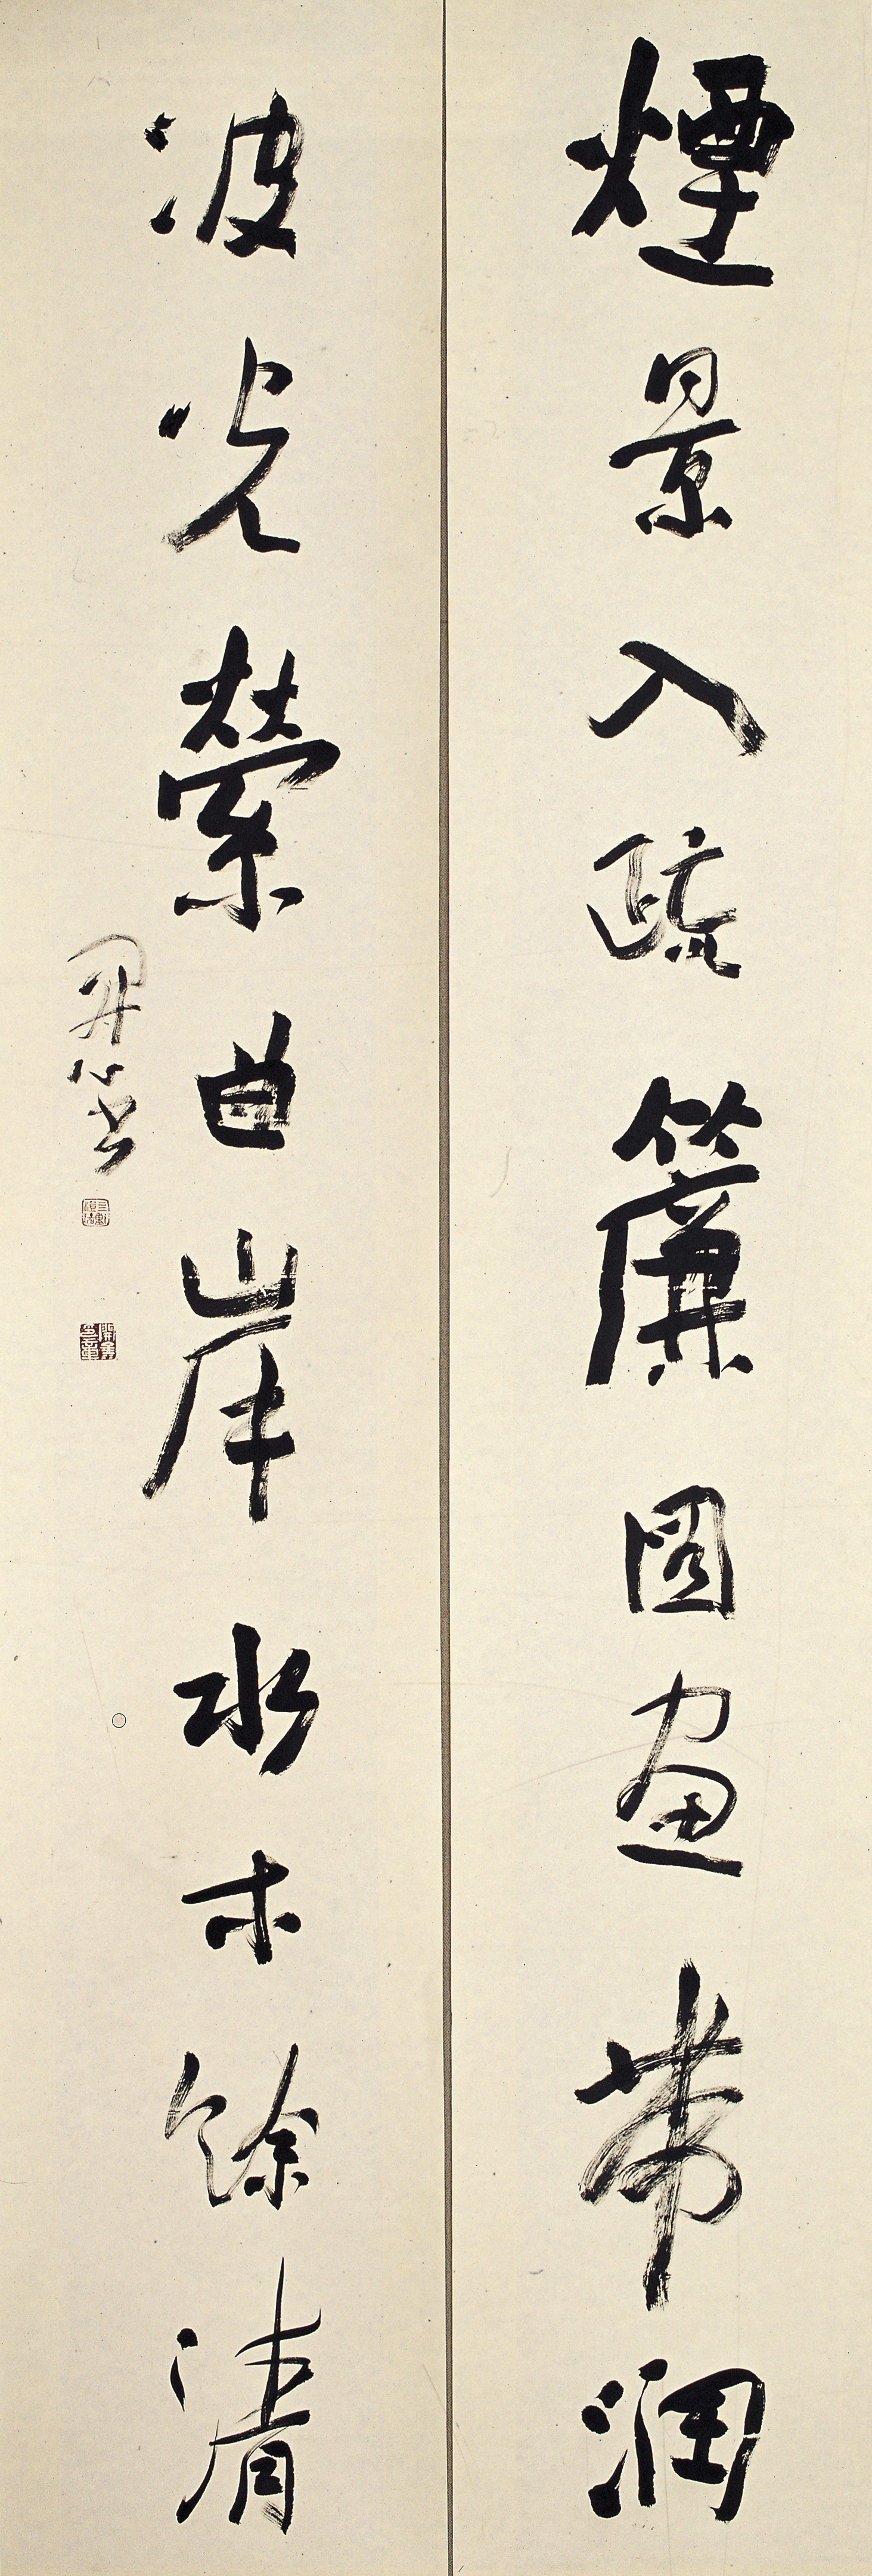 煙景入疏簾圖畫帶潤
波光縈曲岸水木餘清